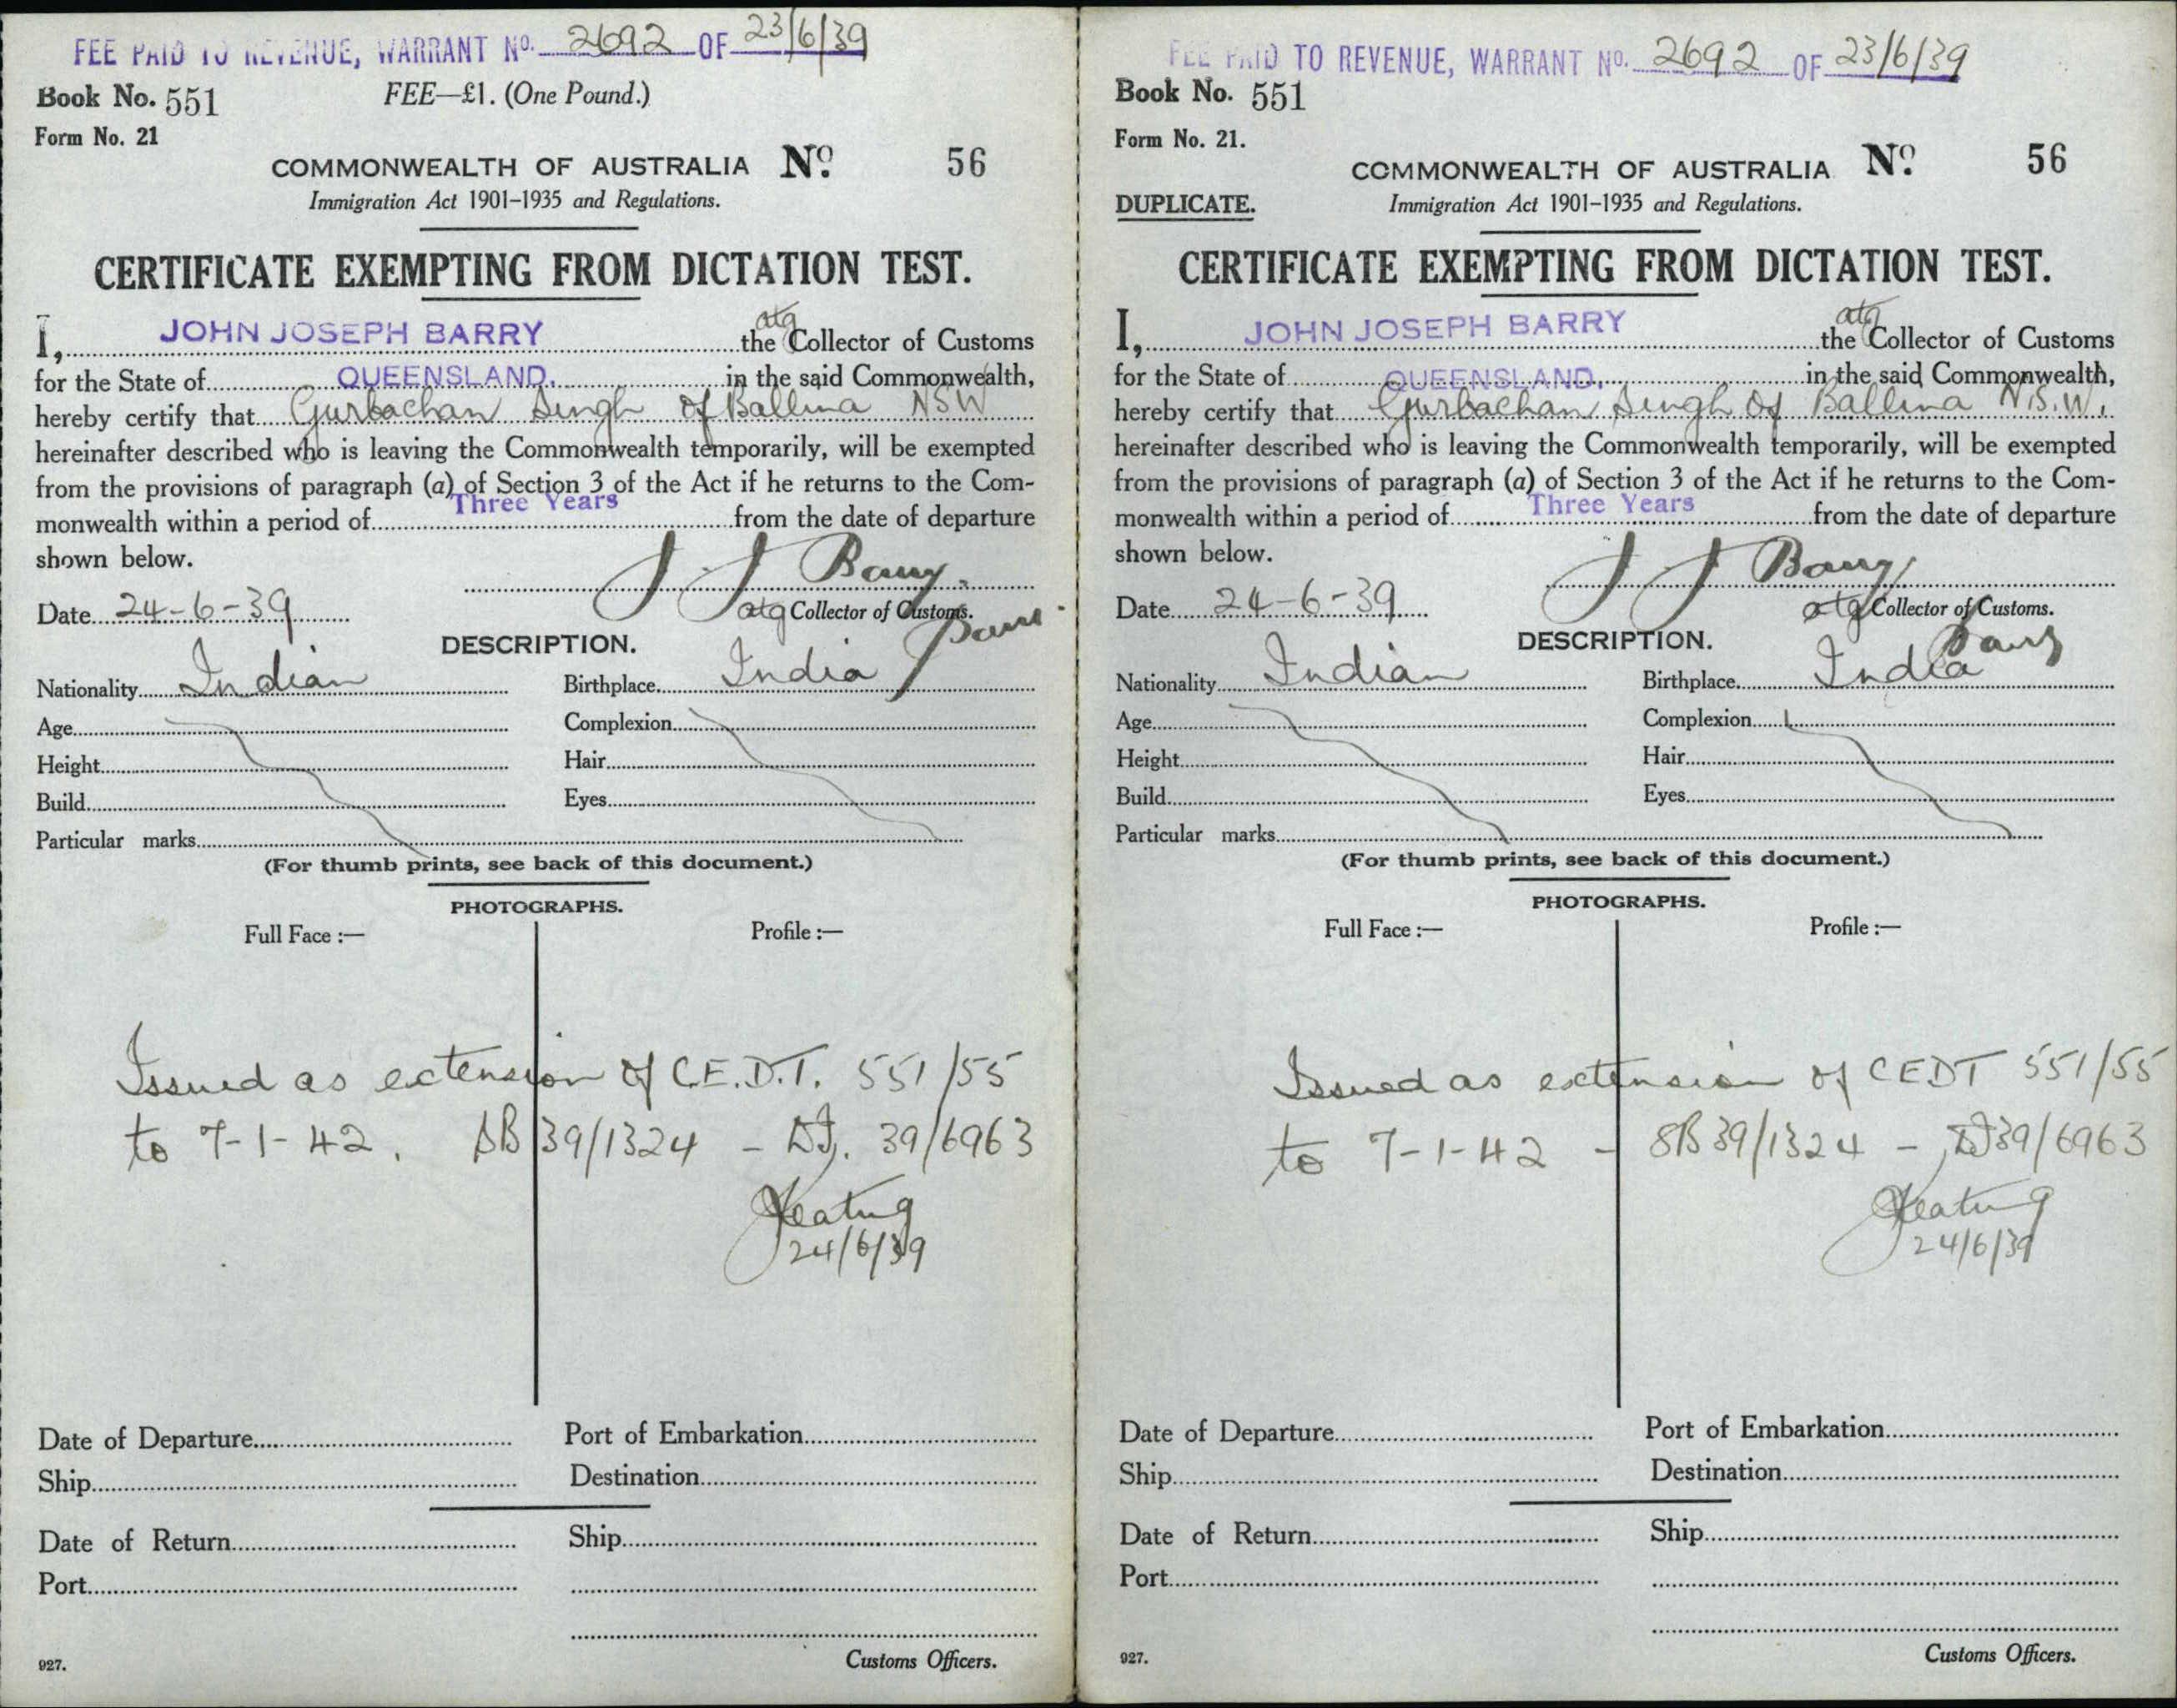 FEE PAID TO REVENUE, WARRANT No. 2692 OF 23/6/39
Book No. 551 FEE—£1. (One Pound.)
Form No. 21
COMMONWEALTH OF AUSTRALIA No. 56
Immigration Act 1901-1935 and Regulations.
CERTIFICATE EXEMPTING FROM DICTATION TEST.
I, JOHN JOSEPH BARRY the atg Collector of Customs
for the State of QUEENSLAND. in the said Commonwealth,
hereby certify that Gurbachan Singh of Ballina NSW
hereinafter described who is leaving the Commonwealth temporarily, will be exempted
from the provisions of paragraph (a) of Section 3 of the Act if he returns to the Com-
monwealth within a period of Three Years from the date of departure
shown below.
J J Barry
Date 24-6-39 atg Collector of Customs.
Barry
DESCRIPTION.
Nationality Indian Birthplace India
Age Complexion
Height Hair
Build Eyes
Particular marks
(For thumb prints, see back of this document.)
PHOTOGRAPHS.
Full Face :— Profile :—
Issued as extension of C.E.D.T. 551/55
to 7-1-42. SB 39/1324 - 39/6963
Keating
24/6/39
Date of Departure Port of Embarkation
Ship Destination
Date of Return Ship
Port
927. Customs Officers.
FEE PAID TO REVENUE, WARRANT No. 2692 OF 23/6/39
Book No. 551
Form No. 21.
COMMONWEALTH OF AUSTRALIA No. 56
DUPLICATE. Immigration Act 1901-1935 and Regulations.
CERTIFICATE EXEMPTING FROM DICTATION TEST.
I, JOHN JOSEPH BARRY the atg Collector of Customs
for the State of QUEENSLAND. in the said Commonwealth,
hereby certify that Gurbachan Singh of Ballina N.S.W.
hereinafter described who is leaving the Commonwealth temporarily, will be exempted
from the provisions of paragraph (a) of Section 3 of the Act if he returns to the Com-
monwealth within a period of Three Years from the date of departure
shown below.
J J Barry
Date 24-6-39 atg Collector of Customs.
Barry
DESCRIPTION.
Nationality Indian Birthplace India
Age Complexion
Height Hair
Build Eyes
Particular marks
(For thumb prints, see back of this document.)
PHOTOGRAPHS.
Full Face :— Profile :—
Issued as extension of CEDT 551/55
to 7-1-42 - SB 39/1324 - 39/6963
Keating
24/6/39
Date of Departure Port of Embarkation
Ship Destination
Date of Return Ship
Port
927. Customs Officers.